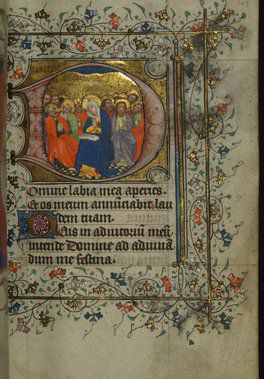 Domine labia mea aperies.
Et os meum annuntiabit lau
dem tuam.
Deus in adiutoriū meū
intende Domine ad adiuuā
dum me festina.